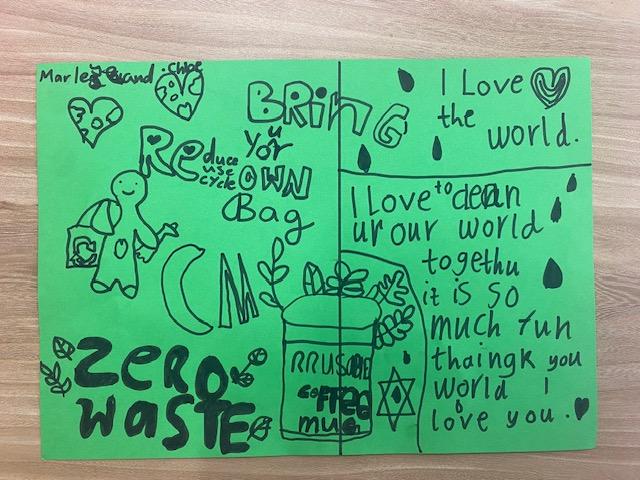 Marley and .chloe
BRING
your
OWN
Bag
Reduce
use
cycle
C M
ZERO
WASTE
RRUSABLE
COFFEE
mug
I Love
the world.
I Love to clean
ur our world
togethu
it is so
much fun
thaingk you
world I
love you.